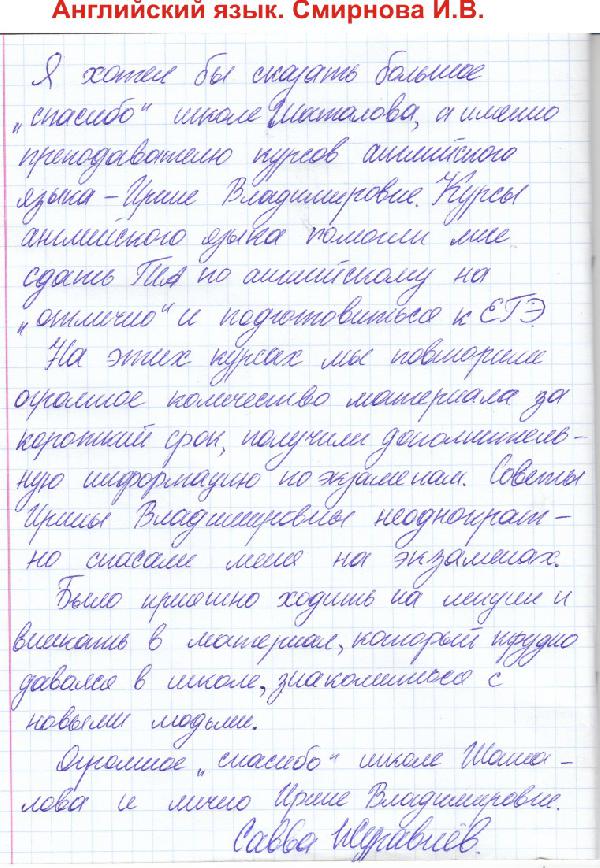 Английский язык. Смирнова И.В.
Я хотел бы сказать большое
„спасибо“ школе Шаталова, а именно
преподавателю курсов английского
языка – Ирине Владимировне. Курсы
английского языка помогли мне
сдать ГИА по английскому на
„отлично“ и подготовиться к ЕГЭ.
На этих курсах мы повторили
огромное количество материала за
короткий срок, получили дополнитель-
ную информацию по экзаменам. Советы
Ирины Владимировны неоднократ-
но спасали меня на экзаменах.
Было приятно ходить на лекции и
вникать в материал, который трудно
давался в школе, знакомиться с
новыми людьми.
Огромное „спасибо“ школе Шата-
лова и лично Ирине Владимировне.
Савва Журавлёв.